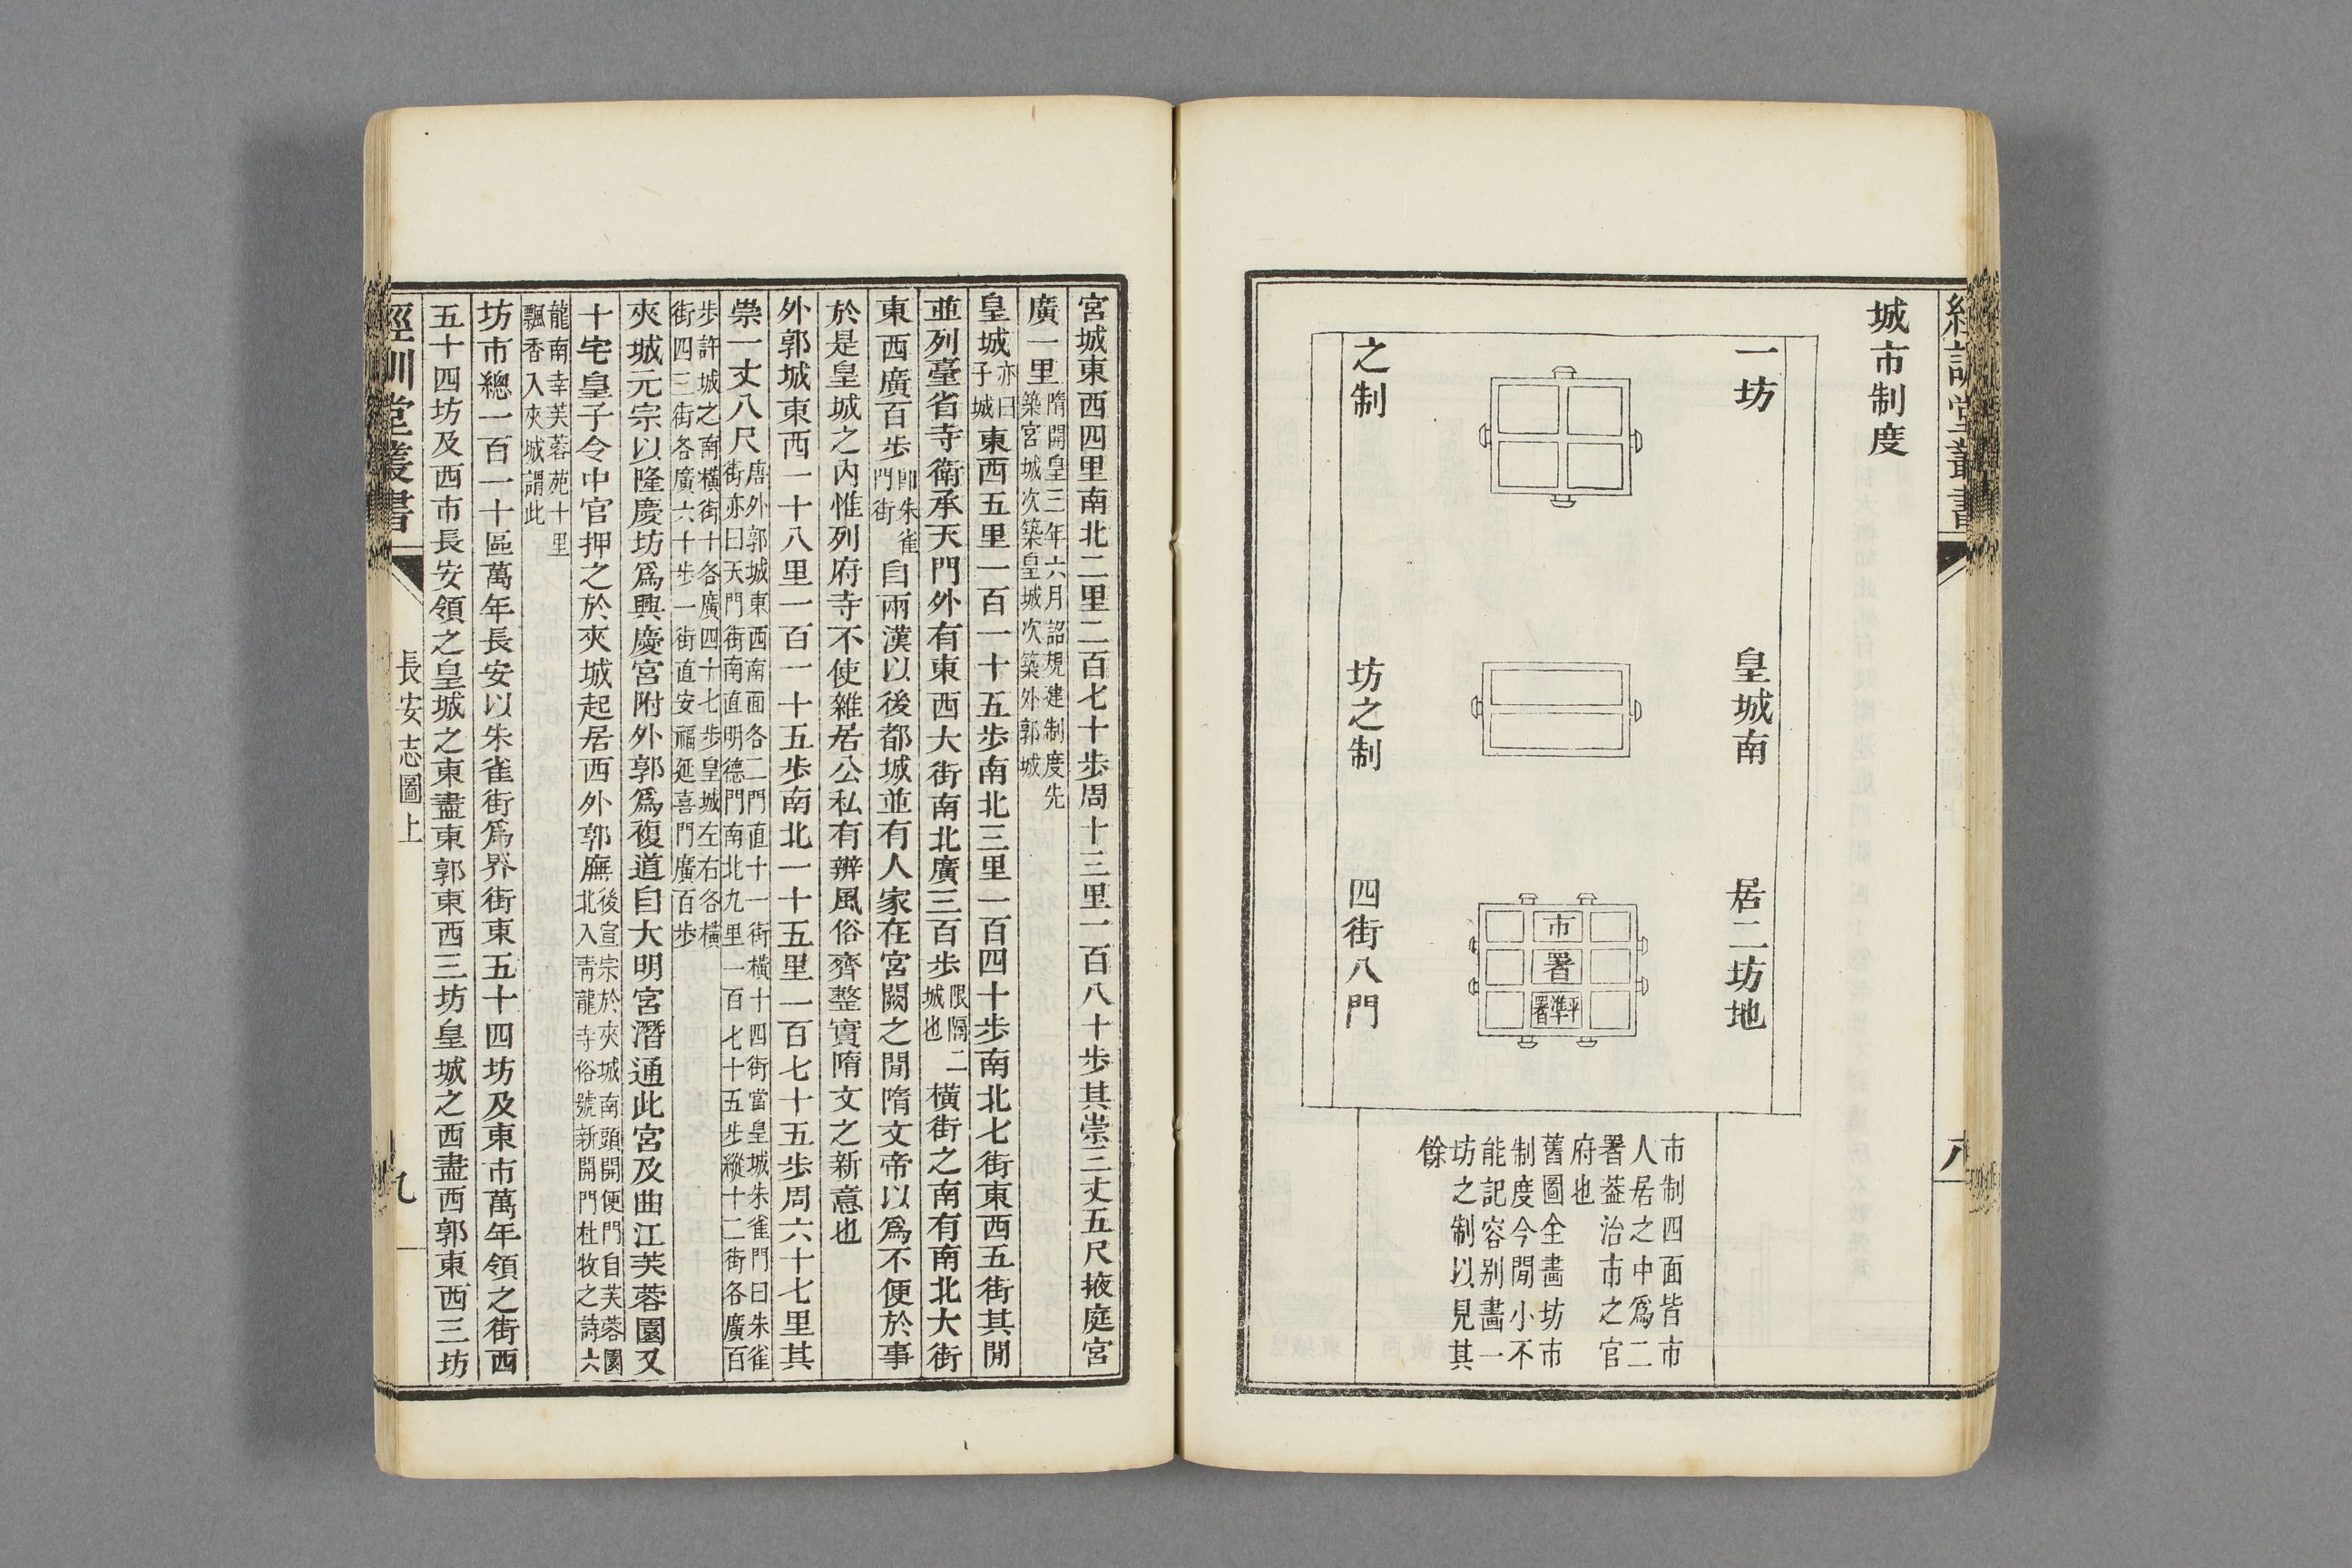 城市制度
一坊
之制
皇城南
坊之制
居二坊地
四街八門
市
署
平準署
市制四面皆市
人居之中爲二
署葢治市之官
府也
舊圖全畵坊市
制度今閒小不
能記容别畵一
坊之制以見其
餘
八
宮城東西四里南北二里二百七十步周十三里一百八十步其崇三丈五尺掖庭宮
廣一里隋開皇三年六月詔規建制度先
築宮城次築皇城次築外郭城
皇城亦曰
子城東西五里一百一十五步南北三里一百四十步南北七街東西五街其閒
並列臺省寺衛承天門外有東西大街南北廣三百步限隔二
城也橫街之南有南北大街
東西廣百步卽朱雀
門街自兩漢以後都城並有人家在宮闕之閒隋文帝以爲不便於事
於是皇城之內惟列府寺不使雜居公私有辨風俗齊整實隋文之新意也
外郭城東西一十八里一百一十五步南北一十五里一百七十五步周六十七里其
崇一丈八尺唐外郭城東西南面各二門直十一街橫十四街當皇城朱雀門曰朱雀
街亦曰天門街南直明德門南北九里一百七十五步縱十二街各廣百
步許城之南橫街十各廣四十七步皇城左右各橫
街四三街各廣六十步一街直安福延喜門廣百步
夾城元宗以隆慶坊爲興慶宮附外郭爲複道自大明宮潛通此宮及曲江芙蓉園又
十宅皇子令中官押之於夾城起居西外郭廡後宣宗於夾城南頭開便門自芙蓉園
北入靑龍寺俗號新開門杜牧之詩六
龍南幸芙蓉苑十里
飄香入夾城謂此
坊市總一百一十區萬年長安以朱雀街爲界街東五十四坊及東市萬年領之街西
五十四坊及西市長安領之皇城之東盡東郭東西三坊皇城之西盡西郭東西三坊
經訓堂叢書
長安志圖上
九